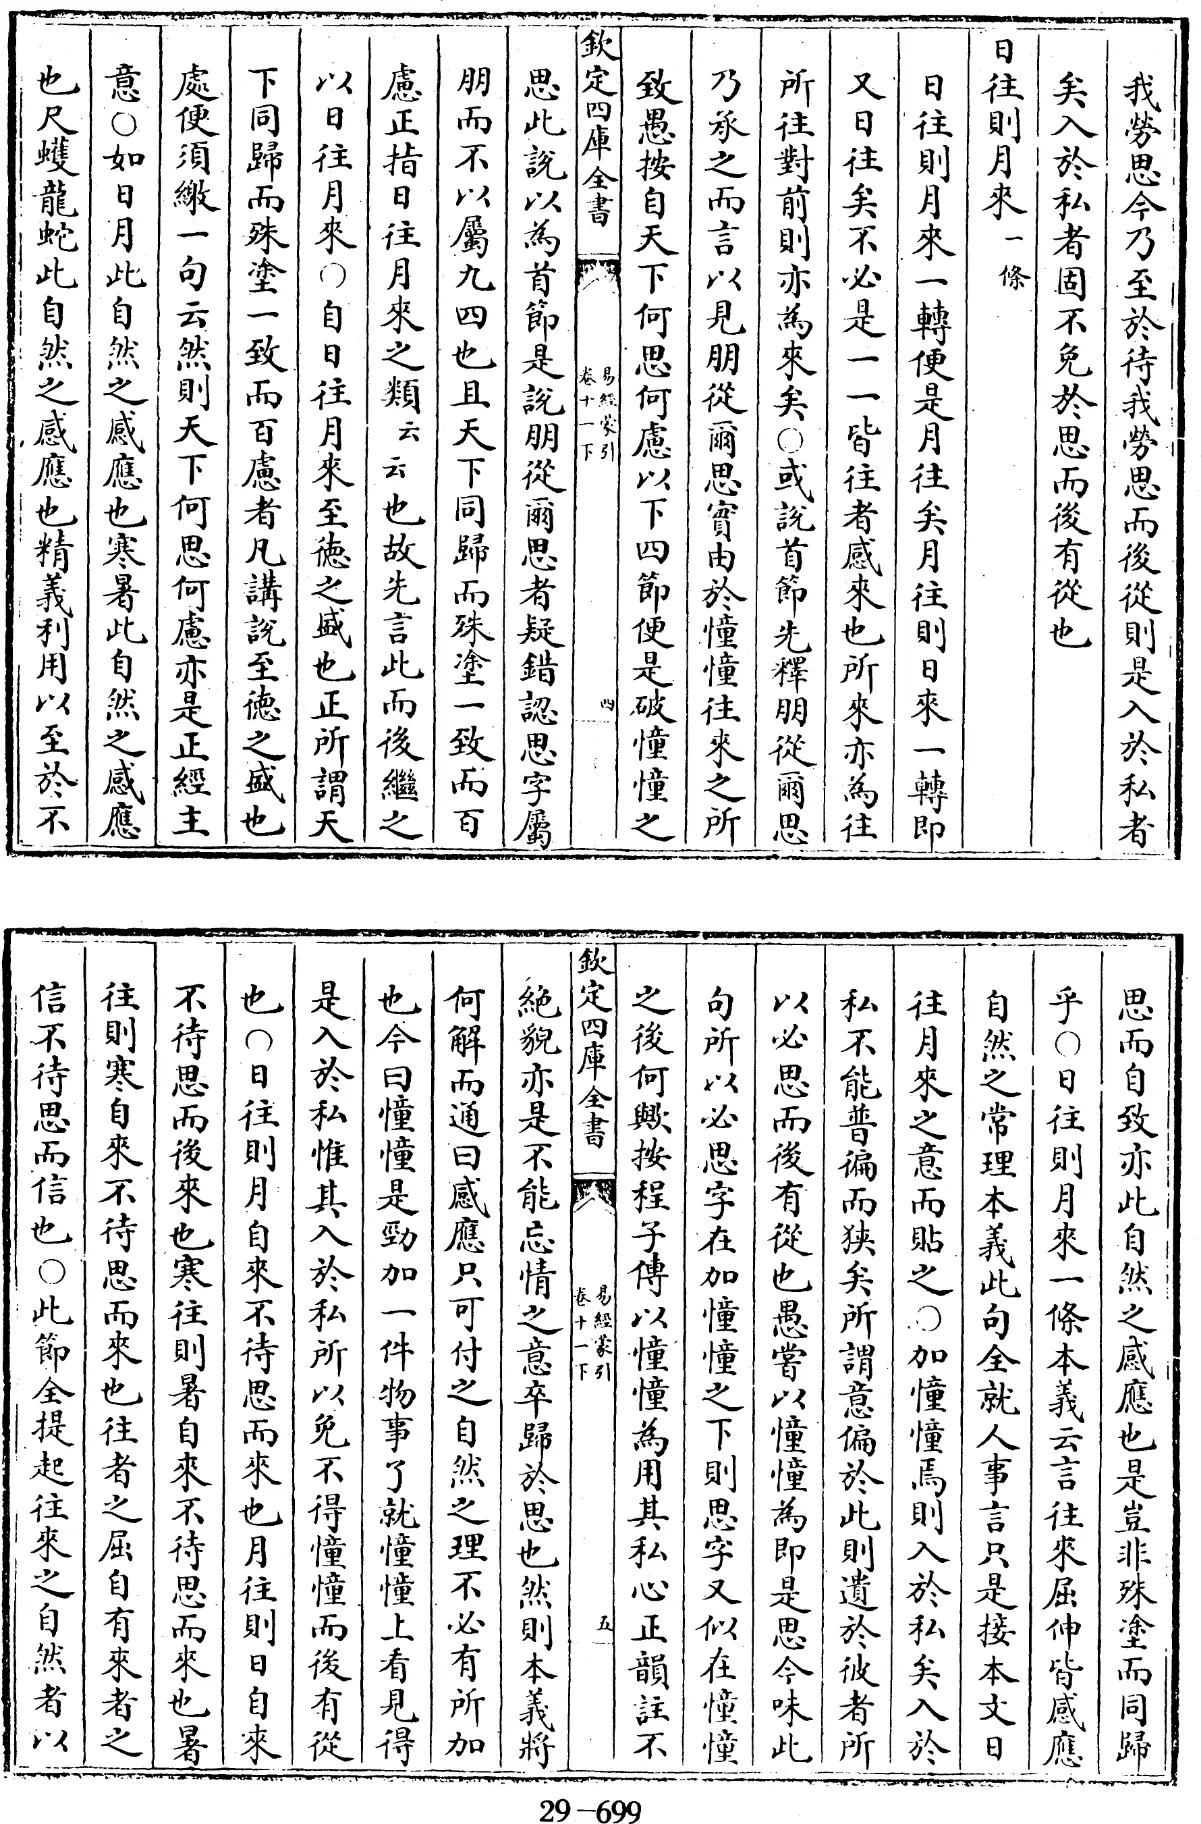 我勞思今乃至於待我勞思而後從則是入於私者
矣入於私者固不免於思而後有從也
日往則月來一條
日往則月來一轉便是月往矣月往則日來一轉即
又日往矣不必是一一皆往者感來也所來亦為往
所往對前則亦為來矣○或說首節先釋朋從爾思
乃承之而言以見朋從爾思實由於憧憧往來之所
致愚按自天下何思何慮以下四節便是破憧憧之
欽定四庫全書
易經蒙引
卷十一下
四
思此說以為首節是說朋從爾思者疑錯認思字屬
朋而不以屬九四也且天下同歸而殊塗一致而百
慮正指日往月來之類云云也故先言此而後繼之
以日往月來○自日往月來至德之盛也正所謂天
下同歸而殊塗一致而百慮者凡講說至德之盛也
處便須繳一句云然則天下何思何慮亦是正經主
意○如日月此自然之感應也寒暑此自然之感應
也尺蠖龍蛇此自然之感應也精義利用以至於不
思而自致亦此自然之感應也是豈非殊塗而同歸
乎○日往則月來一條本義云言往來屈伸皆感應
自然之常理本義此句全就人事言只是接本文日
往月來之意而貼之○加憧憧焉則入於私矣入於
私不能普徧而狹矣所謂意偏於此則遺於彼者所
以必思而後有從也愚嘗以憧憧為即是思今味此
句所以必思字在加憧憧之下則思字又似在憧憧
之後何歟按程子傳以憧憧為用其私心正韻註不
欽定四庫全書
易經蒙引
卷十一下
五
絶貌亦是不能忘情之意卒歸於思也然則本義將
何解而通曰感應只可付之自然之理不必有所加
也今曰憧憧是勁加一件物事了就憧憧上看見得
是入於私惟其入於私所以免不得憧憧而後有從
也○日往則月自來不待思而來也月往則日自來
不待思而後來也寒往則暑自來不待思而來也暑
往則寒自來不待思而來也往者之屈自有來者之
信不待思而信也○此節全提起往來之自然者以
29-699